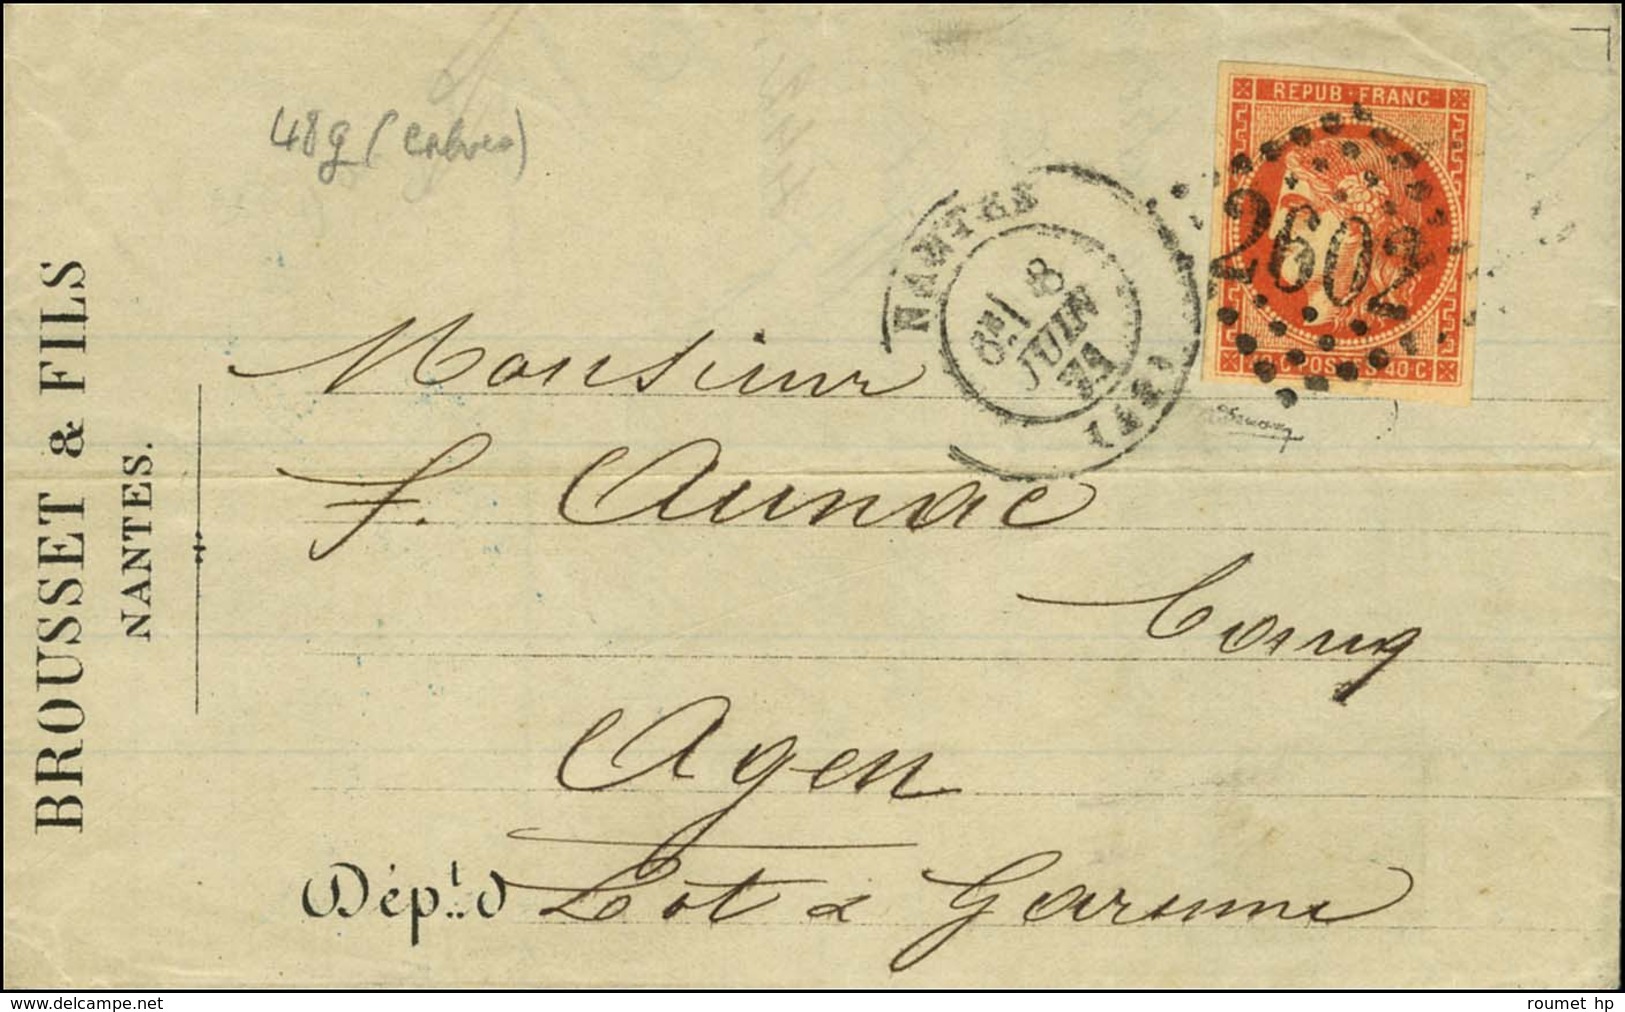 48g (
REPUB·FRANC
2602
POSTES 40 C
NANTES
6E/ 8
JUIN
71
(42)
BROUSSET & FILS
NANTES.
Monsieur
F. Aunac
Agen
Dépt. d Lot & Garonne
www.delcampe.net
roumet hp